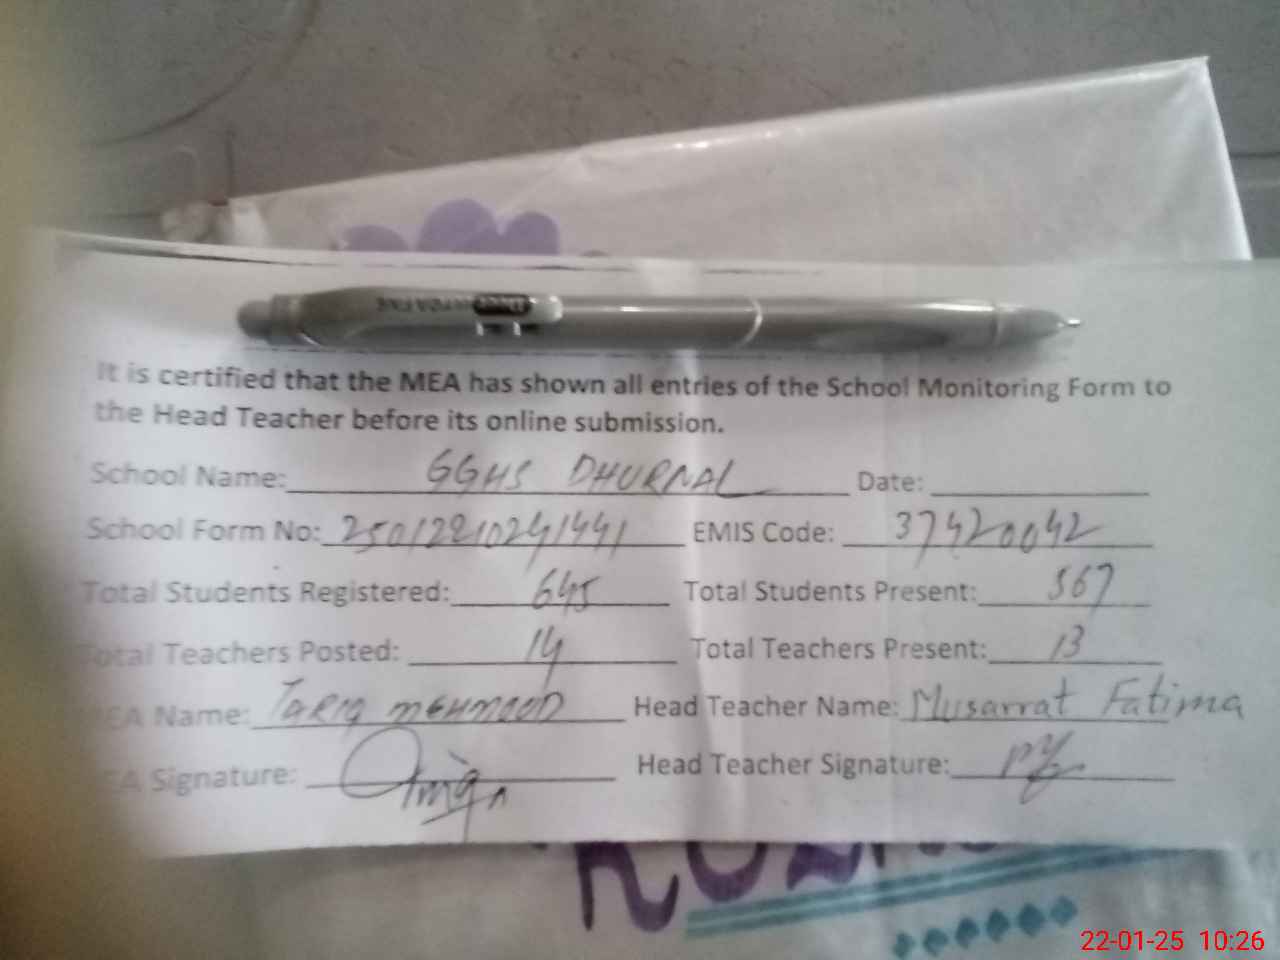 It is certified that the MEA has shown all entries of the School Monitoring Form to
the Head Teacher before its online submission.
School Name: GGHS DHURNAL Date:
School Form No: 25012210241441 EMIS Code: 37420042
Total Students Registered: 645 Total Students Present: 567
Total Teachers Posted: 14 Total Teachers Present: 13
MEA Name: TARIQ MEHMOOD Head Teacher Name: Musarrat Fatima
MEA Signature: Head Teacher Signature:
22-01-25 10:26